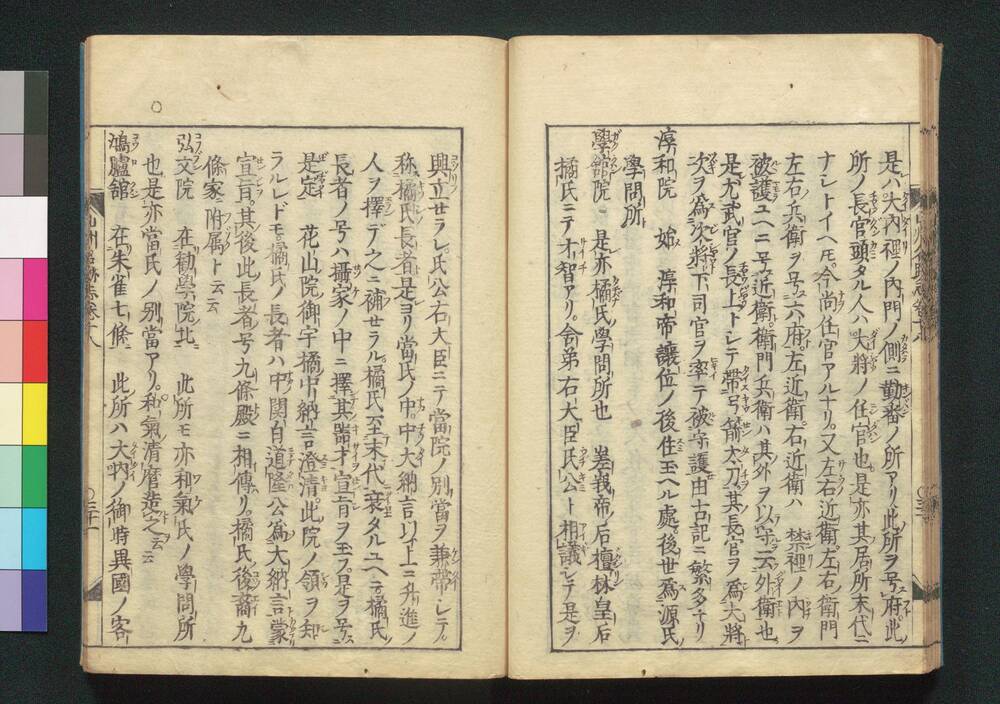 是ハ大内裡ノ内門ノ側ニ勤番ノ所アリ此所ヲ号府此
所ノ長官頭タル人ハ大將ノ任官也是亦其居所末代ニ
ナレトイヘ𪜈今尚任官アルナリ又左右近衛左右衛門
左右兵衛ヲ号六府左近衛右近衛ハ 禁裡ノ内ヲ
被護ユヘニ号近衛衛門兵衛ハ其外ヲ以守云外衛也
是尤武官ノ長上トシテ帯弓箭太刀其長官ヲ爲大將
次ヲ爲次將下司官ヲ率テ被守護由古記ニ繁多ナリ
淳和院 始 淳和帝讓位ノ後住玉ヘル處後世爲源氏
學問所
學館院 是亦橘氏學問所也 嵯峨帝ノ后檀林皇后
橘氏ニテ才智アリ舎弟右大臣氏公ト相議シテ是ヲ
興立セラレ氏公右大臣ニテ當院ノ別當ヲ兼帯シテ
称橘氏長者是ヨリ當氏ノ中中大納言以上ニ升進ノ
人ヲ擇デ之ニ補セラル橘氏至末代衰タルユヘニ橘氏
長者ノ号ハ攝家ノ中ニ擇其器才宣旨ヲ玉フ是ヲ号
是定 花山院御宇橘中納言澄清此院ノ領ヲ知
ラルレドモ橘氏ノ長者ハ中関白道隆公爲大納言蒙
宣旨其後此長者号九條殿ニ相傳リ橘氏後裔九
條家ニ附属ト云云
弘文院 在勸學院北 此所モ亦和氣氏ノ學問所
也是亦當氏ノ別當アリ和氣清麿造之云云
鴻臚館 在朱雀七條 此所ハ大内ノ御時異國ノ客
山州名跡志巻十八
○三十一